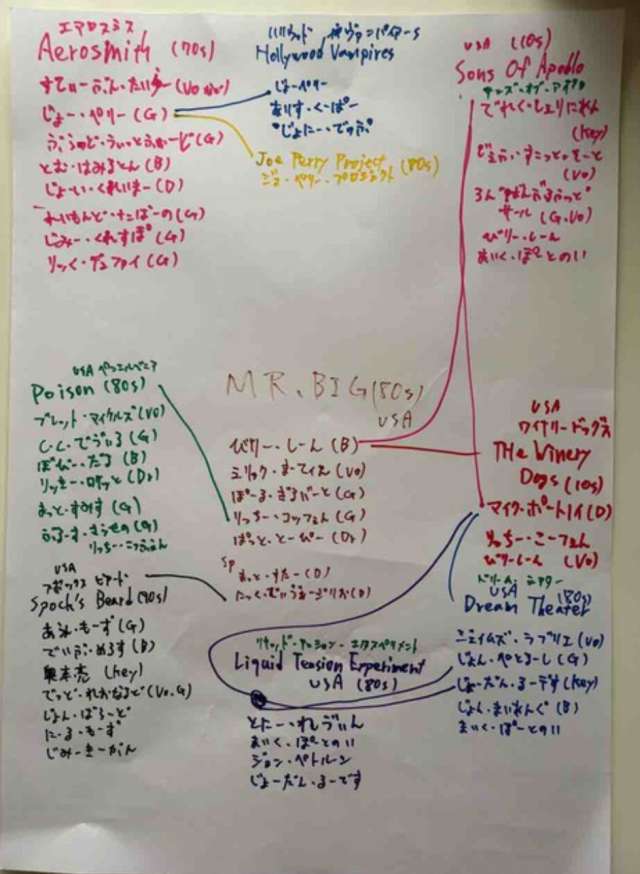 エアロスミス
Aerosmith (70s)
すてぃーぶん・たいらー (Vo)
じょー・ぺりー (G)
ぶらっど・うぃっとふぉーど (G)
とむ・はみるとん (B)
じょーい・くれいまー (D)
れいもんど・たばーの (G)
じみー・くれすぽ (G)
りっく・デュファイ (G)
Hollywood Vampires
じょーぺりー
ありす・くーぱー
じょにー・でっぷ
Joe Perry Project (80s)
ジョー・ペリー・プロジェクト
USA (10s)
Sons Of Apollo
サンズ・オブ・アポロ
でれく・しぇりにあん
(Key)
じぇふ・すこっと・そーと
(Vo)
ろん
サール (G.Vo)
びりー・しーん
まいく・ぽーとのい
USA ペンシルベニア
Poison (80s)
ブレット・マイケルズ (Vo)
C.C.でぅぃる (G)
ぼびー・だる (B)
りっきー・ロケット (Dr)
まっと・すみす (G)
ぶるーす・さらせの (G)
りっちー・こっつぇん
MR. BIG (80s)
USA
びりー・しーん (B)
エリック・まーてぃん (Vo)
ぽーる・ぎるばーと (G)
りっちー・コッツェン (G)
ぱっと・とーぴー (Dr)
sp
まっと・すたー (D)
にっく・でぃゔぁーじりお (D)
USA
ワイナリードッグス
THe Winery
Dogs (10s)
マイク・ポートノイ (D)
りっちー・こーつぇん
びりーしーん (Vo)
USA
スポックス ビアード
Spock's Beard (90s)
あらん・もーず (G)
でいぶ・めろす (B)
奥本亮 (Key)
てっど・れおなるど (Vo.G)
じょん・ぼろーど
にーる・もーず
じみー・きーがん
ドリーム・シアター
USA (80s)
Dream Theater
ジェイムズ・ラブリエ (Vo)
じょん・ぺとるーし (G)
じょーだん・るーです (Key)
じょん・まいあんぐ (B)
まいく・ぽーとのい
リキッド・テンション・エクスペリメント
Liquid Tension Experiment
USA (80s)
とにー・れゔぃん
まいく・ぽーとのい
ジョン・ペトルーシ
じょーだん・るーです